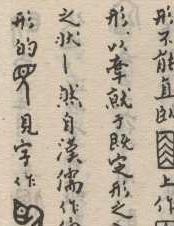 形不能直臥 上作
形，以牽就于既定形之
之狀—然自漢儒作
形的 見字作